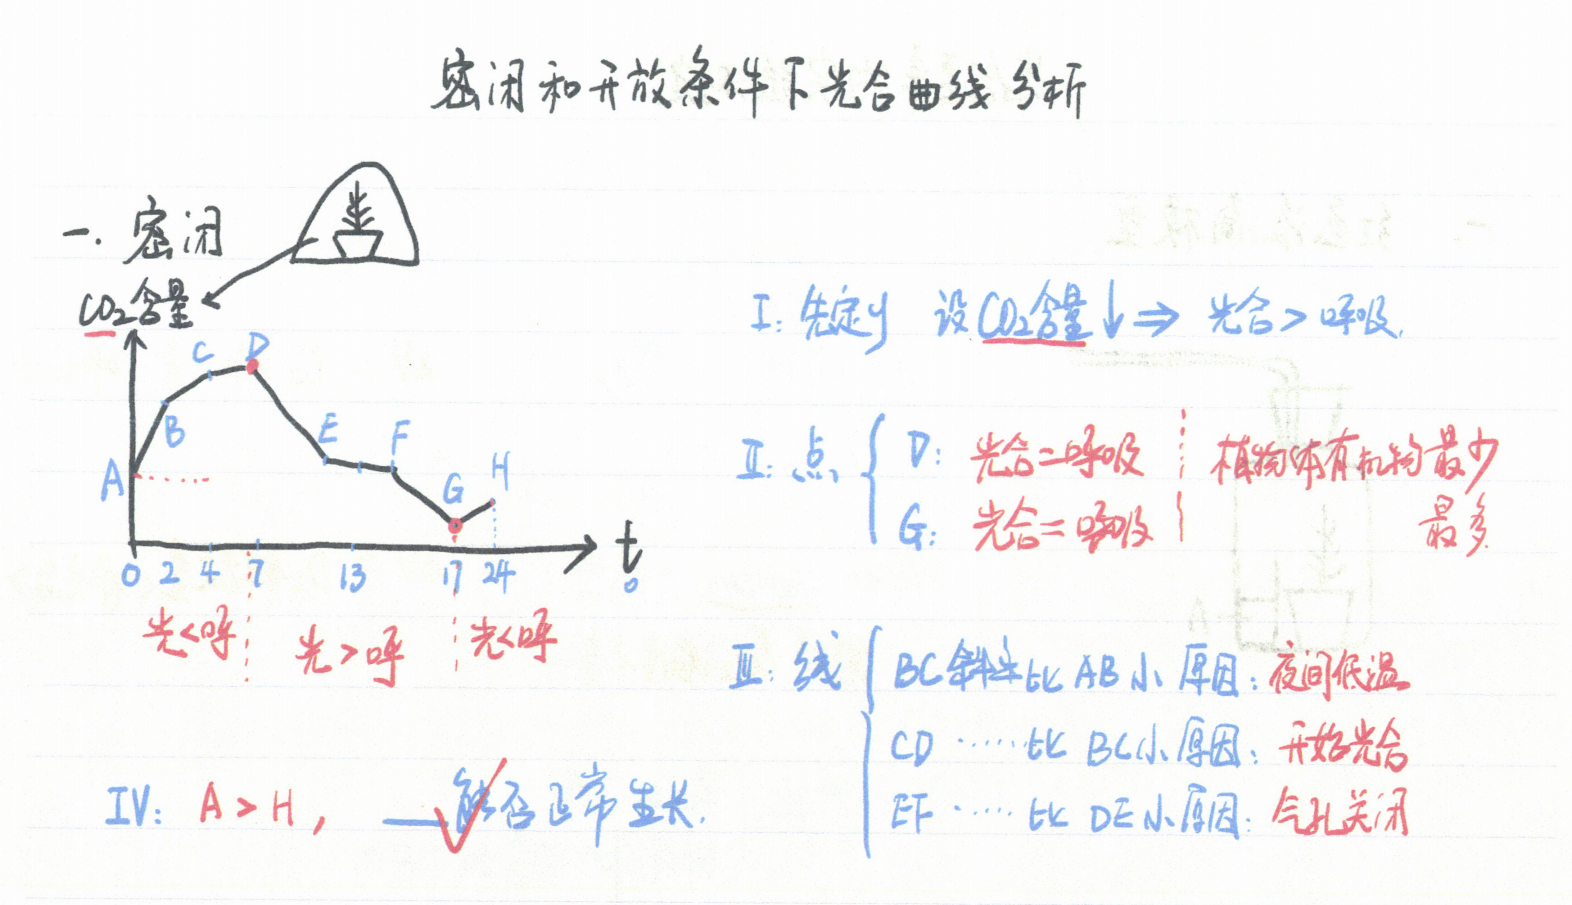 密闭和开放条件下光合曲线分析
一. 密闭
CO₂含量
A B C D E F G H
0 2 4 7 13 17 24 t
光<呼 光>呼 光<呼
I: 先定y 设CO₂含量↓⇒ 光合>呼吸.
II: 点
D: 光合=呼吸 植物体有机物最少
G: 光合=呼吸 最多.
III: 线
BC斜率比AB小 原因: 夜间低温
CD ······比BC小原因: 开始光合
EF ······比DE小原因: 气孔关闭
IV: A>H, 能否正常生长.